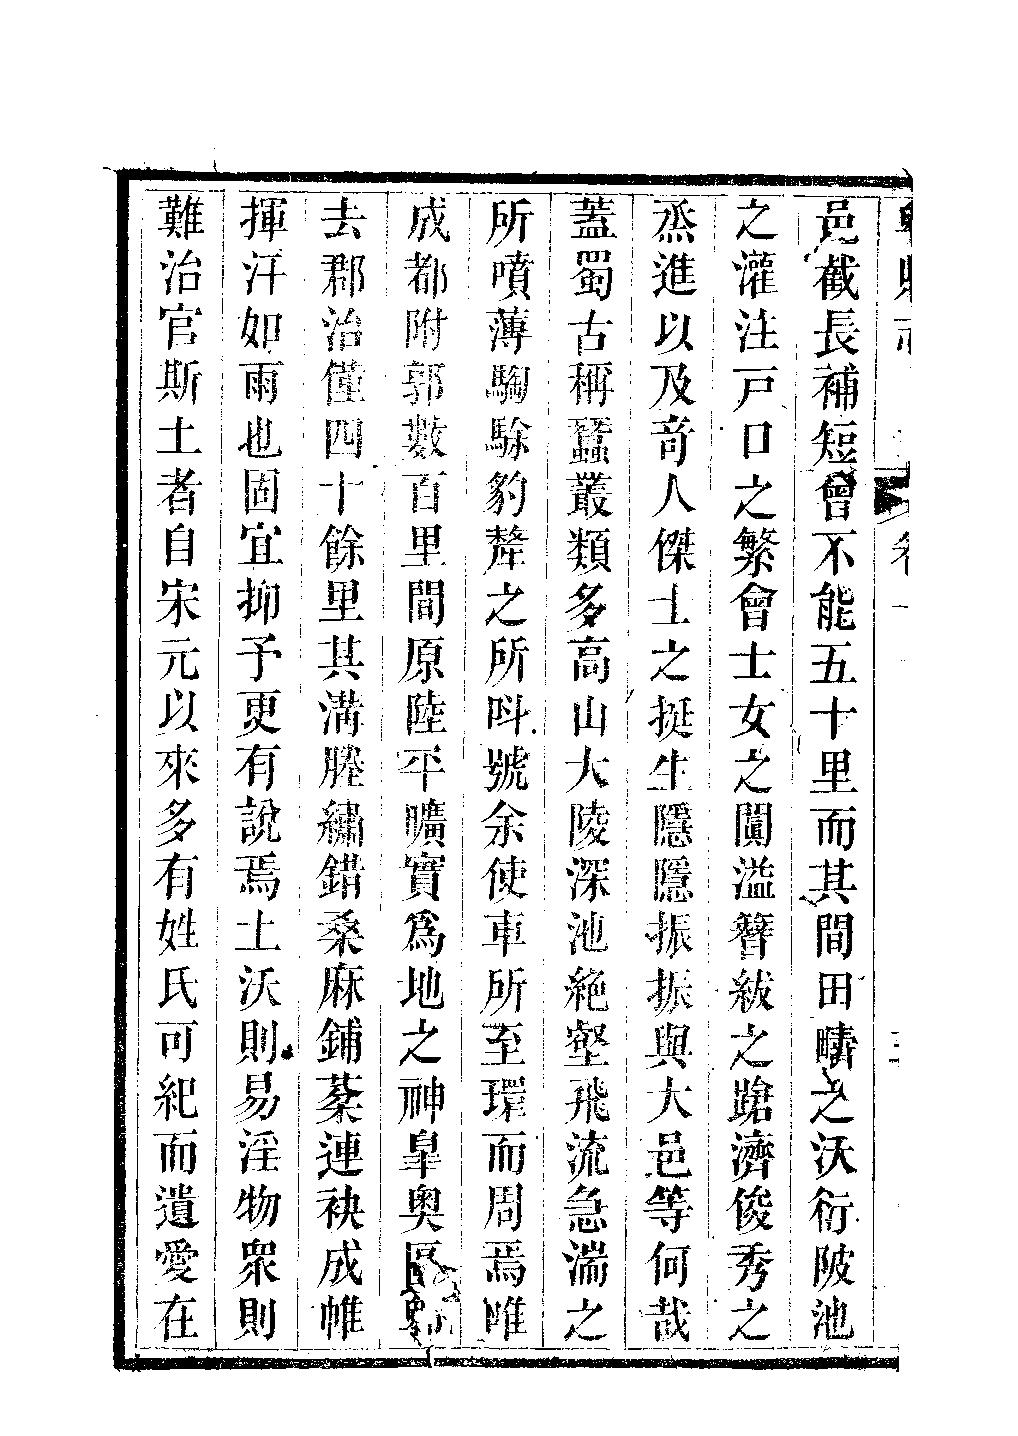 邑截長補短曾不能五十里而其間田疇之沃衍陂池
之灌注戸口之繁會士女之闐溢簪紱之蹌濟俊秀之
烝進以及竒人傑士之挺生隱隱振振與大邑等何哉
蓋蜀古稱蠶叢類多高山大陵深池絶壑飛流急湍之
所噴薄騊駼豹犛之所呌號余使車所至環而周焉唯
成都附郭數百里間原陸平曠實爲地之神臯奧區郫
去郡治僅四十餘里其溝塍繡錯桑麻鋪棻連袂成帷
揮汗如雨也固宜抑予更有說焉土沃則易淫物衆則
難治官斯土者自宋元以來多有姓氏可紀而遺愛在